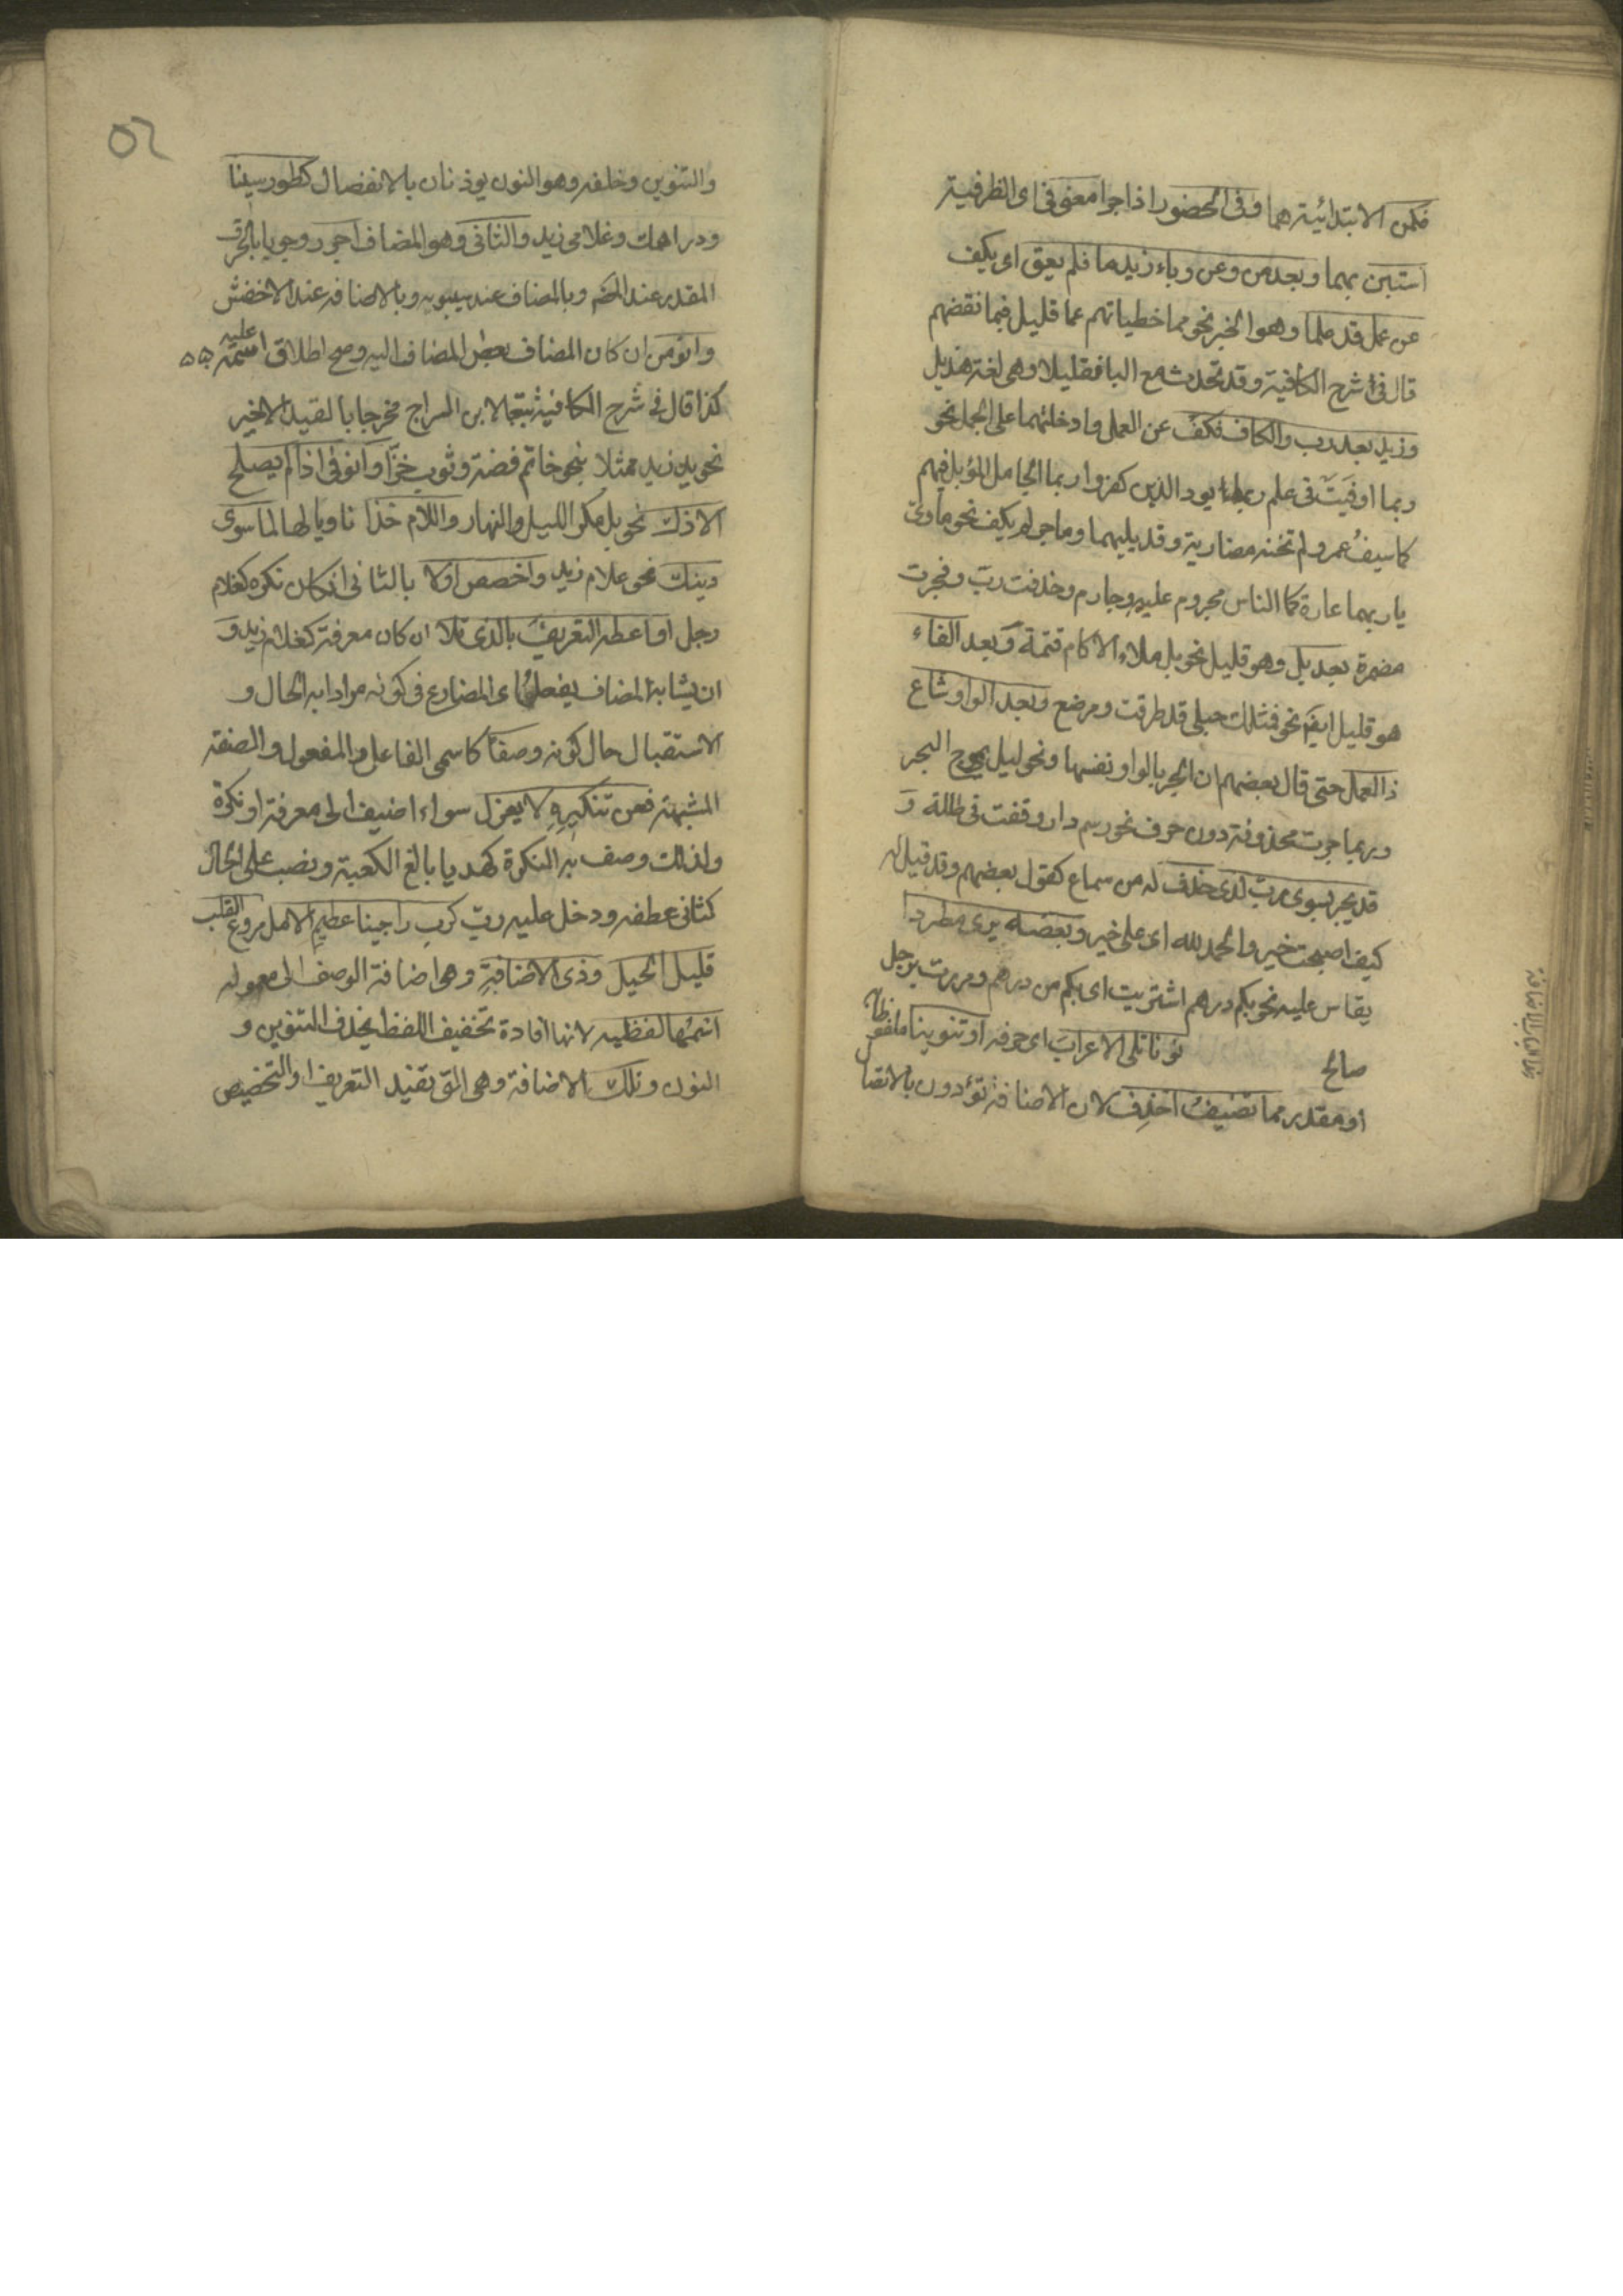 فكمن الابتدائية هما وفى الحضور اذا جرا معنى فى اى الظرفية
استبن بهما وبعد من وعن وباء زيد ما فلم يعق اى يكف
عن عمل قد علما وهو الجر نحو مما خطياتهم عما قليل فبما نقضهم
قال فى شرح الكافية وقد تحدث مع البا فقليلا وهى لغة هذيل
وزيد بعد رب والكاف فكف عن العمل وادخلتهما على الجمل نحو
ربما اوفيت فى علم ربما يود الذين كفروا ربما الجامل المؤبل فيهم
كما سيف عمرو لم تخنه مضاربة وقد يليهما وما جر لم يكف نحو ماوى
يا ربهما غارة كما الناس مجروم عليه وجارم وحذفت رب وفجرت
مضمرة بعد بل وهو قليل نحو بل ملاء الاكام قتمة وبعد الفاء
هو قليل ايضا نحو فمثلك حبلى قد طرقت ومرضع وبعد الواو شاع
ذا العمل حتى قال بعضهم ان الجر بالواو نفسها ونحو ليل كموج البحر
وربما جرت محذوفة دون حرف نحو رسم دار وقفت فى طللة و
قد يجر بسوى رب لدى حذف له من سماع كقول بعضهم وقد قيل له
كيف اصبحت خير والحمد لله اى على خير وبعضه يرى مطردا
يقاس عليه نحو بكم درهم اشتريت اى بكم من درهم ومررت برجل
صالح نونا تلى الاعراب اى حرفه او تنوينا ملفوظا
او مقدر مما تضيف احذف لان الاضافة تؤدون بالاتصال
والتنوين وخلفه وهو النون يوذنان بالانفصال كطور سينا
ودراهمك وغلامى زيد والثانى وهو المضاف اجرر وجوبا بالحرف
المقدر عند المصنف وبالمضاف عند سيبويه وبالاضافه عند الاخفش
وانو من ان كان المضاف بعض المضاف اليه وصح اطلاق اسمه عليه
كذا قال فى شرح الكافية تبعا لابن السراج مخرجا بالقيد الاخير
نحو يد زيد ممثلا بنحو خاتم فضة وثوب خز او انو فى اذا لم يصلح
الا ذاك نحو بل مكر الليل والنهار واللام خذا ناويا لها لما سوى
ذينك نحو غلام زيد واخصص اولا بالثانى ان كان نكره كغلام
رجل او اعطه التعريف بالذى تلا ان كان معرفة كغلام زيد و
ان يشابه المضاف يفعل اى المضارع فى كونه مرادا به الحال و
الاستقبال حال كونه وصفا كاسمى الفاعل والمفعول والصفة
المشبهة فعن تنكيره لا يعزل سواء اضيف الى معرفة او نكرة
ولذلك وصف به النكرة كهديا بالغ الكعبة ونصب على الحال
كثانى عطفه ودخل عليه رب كرب راجينا عظيم الامل مروع القلب
قليل الحيل وذى الاضافة وهى اضافة الوصف الى معموله
اسمها لفظيه لانها افادة تخفيف اللفظ بحذف التنوين و
النون وتلك الاضافة وهى التى تفيد التعريف او التخصيص